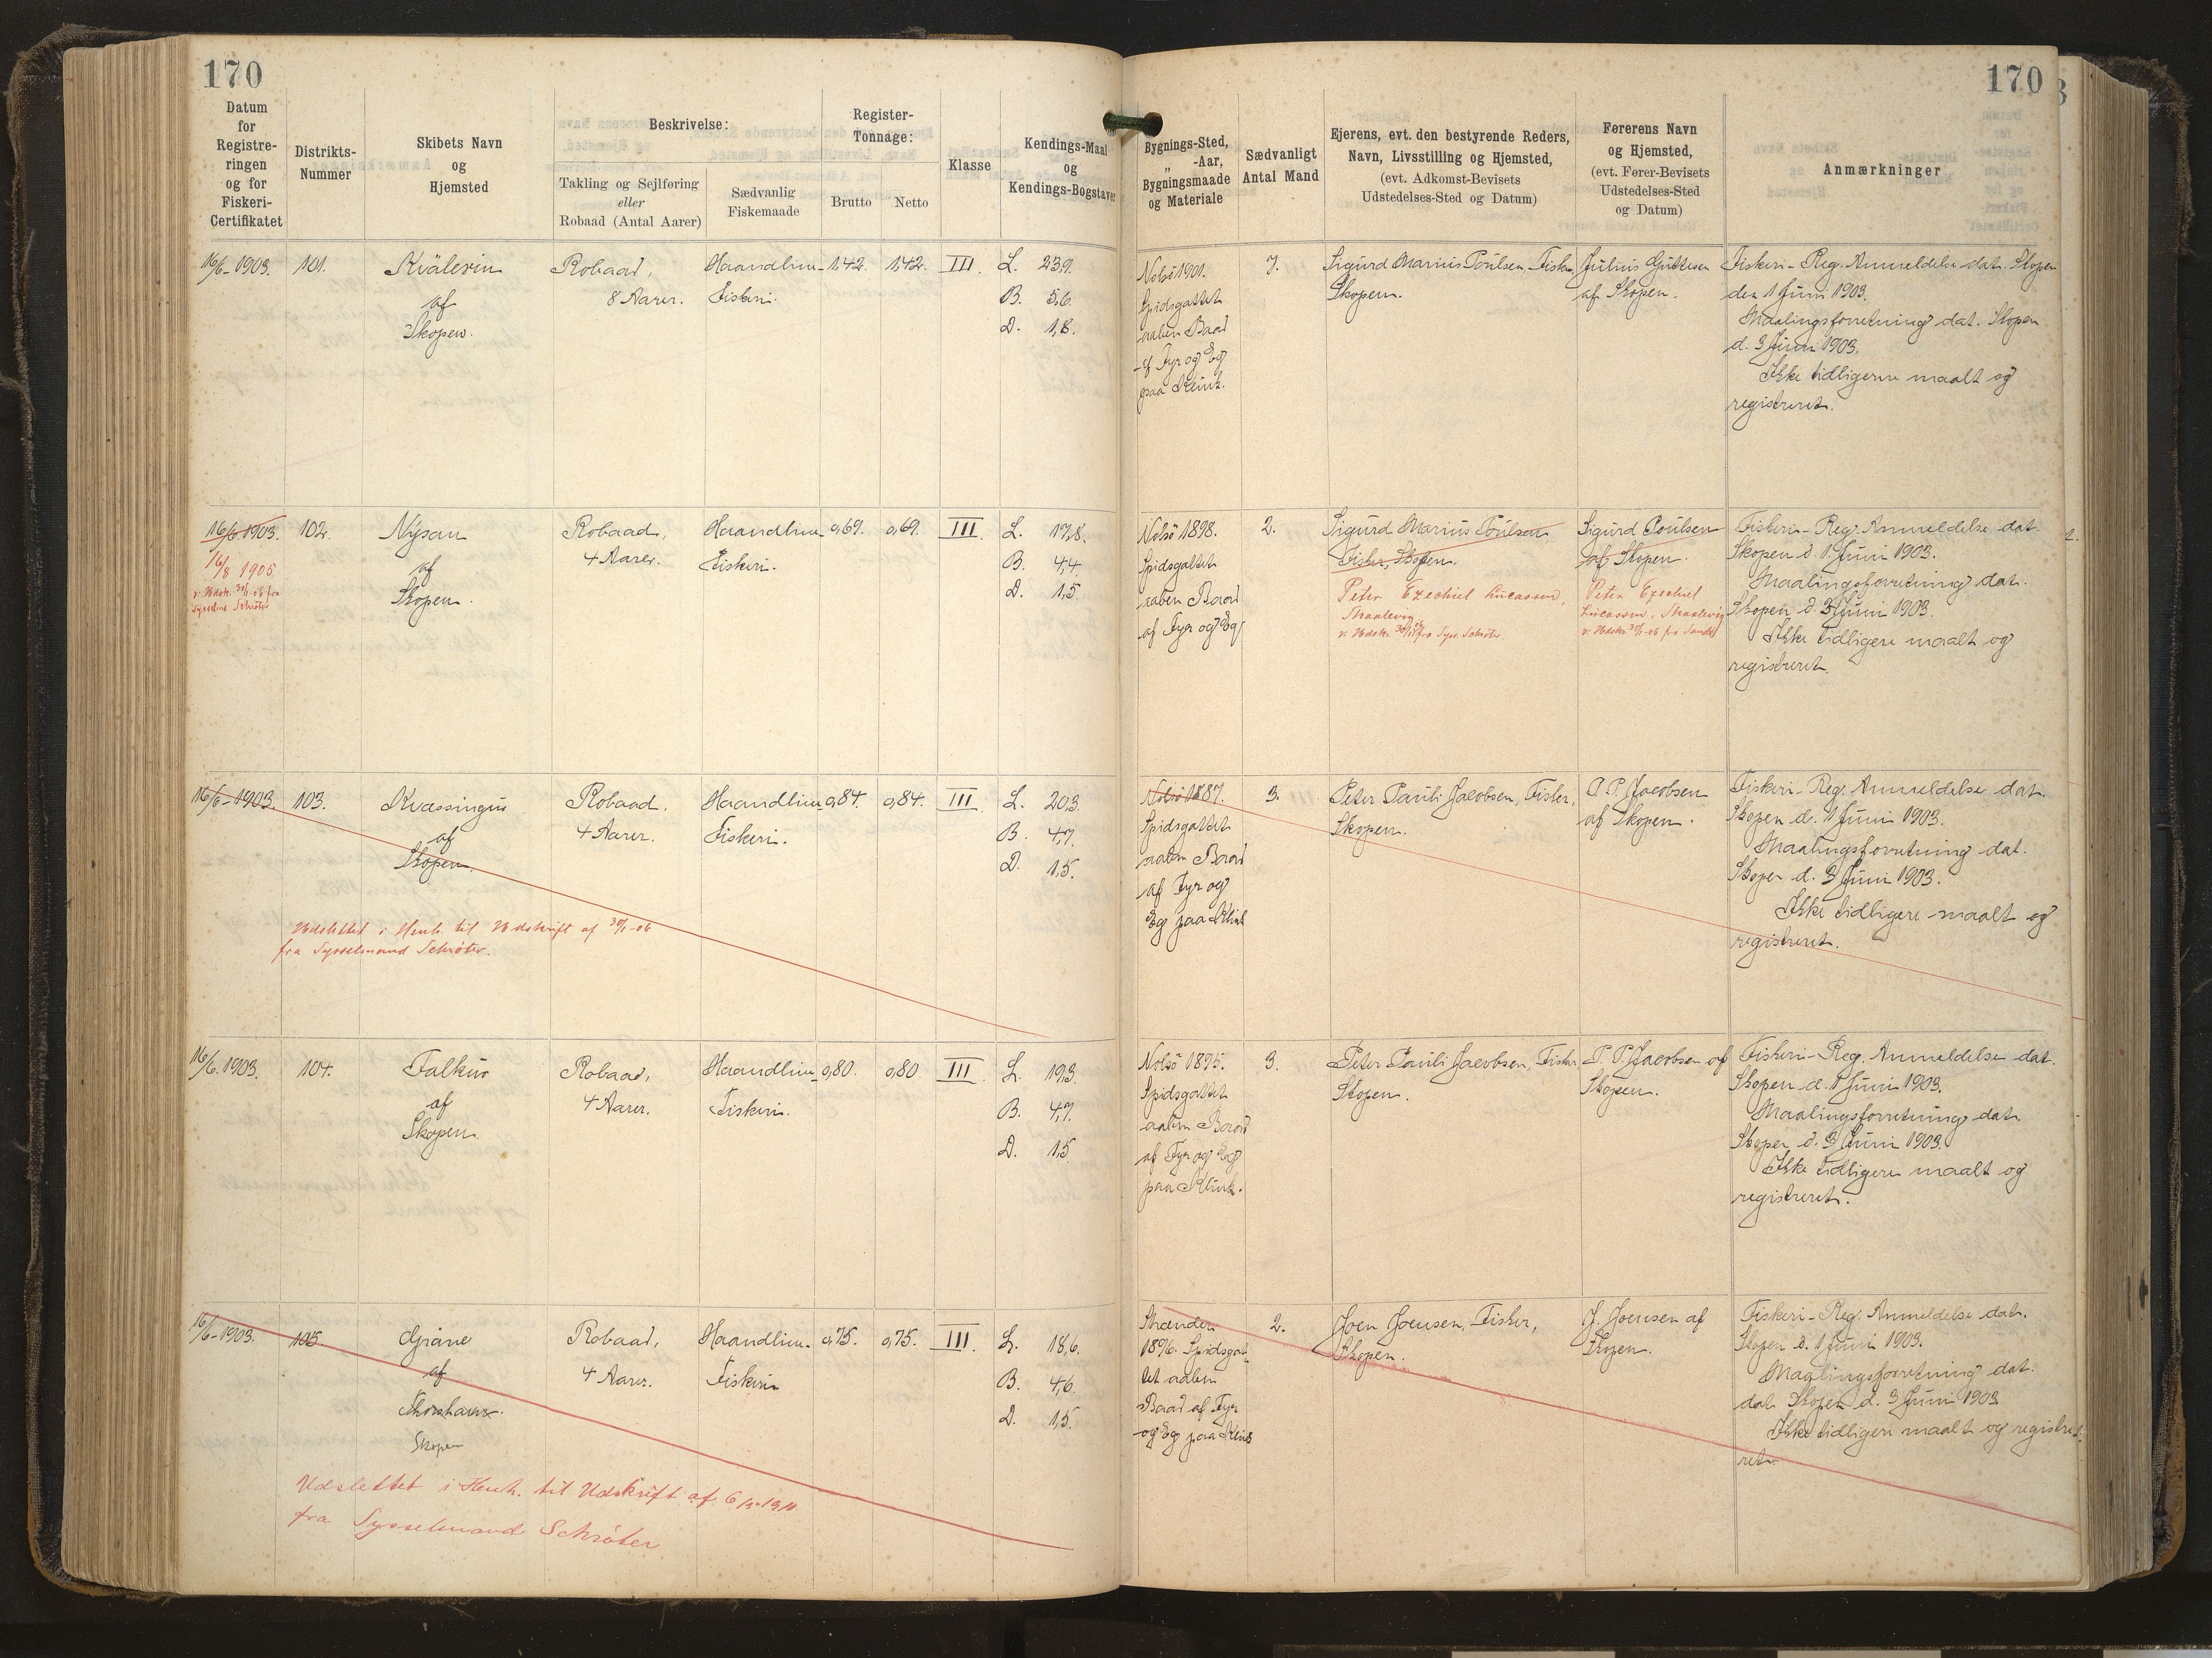 170
170
Datum
for
Registre-
ringen
og for
Fiskeri-
Certifikatet
Distrikts-
Nummer
Skibets Navn
og
Hjemsted
Beskrivelse:
Takling og Sejlføring
eller
Robaad (Antal Aarer)
Sædvanlig
Fiskemaade
Register-
Tonnage:
Brutto
Netto
Klasse
Kendings-Maal
og
Kendings-Bogstaver
Bygnings-Sted,
„ -Aar,
Bygningsmaade
og Materiale
Sædvanligt
Antal Mand
Ejerens, evt. den bestyrende Reders,
Navn, Livsstilling og Hjemsted,
(evt. Adkomst-Bevisets
Udstedelses-Sted og Datum)
Førerens Navn
og Hjemsted,
(evt. Fører-Bevisets
Udstedelses-Sted
og Datum)
Anmærkninger
16/6-1903.
101.
Kvälerin
af
Skopen.
Robaad,
8 Aarer.
Haandline-
Fiskeri.
1,42.
1,42.
III.
L. 23,9.
B. 5,6.
D. 1,8.
Nolsö 1901.
Spidsgattet
aaben Baad
af Fyr og Eg
paa Klink.
7.
Sigurd Marius Poulsen, Fisker,
Skopen.
Julius Guttesen
af Skopen.
Fiskeri-Reg. Anmeldelse dat. Skopen
den 1 Juni 1903.
Maalingsforretning dat. Skopen
d. 3 Juni 1903.
Ikke tidligere maalt og
registreret.
16/6.1903.
16/8 1905
v. Udskr. 30/1-06 fra
Sysselm. Schröter
102.
Nysan
af
Skopen.
Robaad,
4 Aarer.
Haandline-
Fiskeri.
0,69.
0,69.
III.
L. 17,8.
B. 4,4
D. 1,5.
Nolsö 1898.
Spidsgattet
aaben Baad
af Fyr og Eg
2.
Sigurd Marius Poulsen
Fisker, Skopen.
Peter Ezechiel Lucassen,
Skaalevig
v. Udskr. 30/1 06 fra Syss. Schröter.
Sigurd Poulsen
af Skopen.
Peter Ezechiel
Lucassen, Skaalevig
v. Udskr. 30/1-06 fra Sandö
Fiskeri-Reg. Anmeldelse dat.
Skopen d. 1 Juni 1903.
Maalingsforretning dat.
Skopen d. 3 Juni 1903.
Ikke tidligere maalt og
registreret.
16/6-1903.
103.
Kvassingur
af
Skopen.
Robaad.
4 Aarer.
Haandline
Fiskeri.
0,84.
0,84.
III.
L. 20,3.
B. 4,7.
D. 1,5.
Udslettet i Henh. til Udskrift af 30/1-06
fra Sysselmand Schröter.
Nolsö 1887.
Spidsgattet
aaben Baad
af Fyr og
Eg paa Klink
3.
Peter Pauli Jacobsen, Fisker,
Skopen.
P. P. Jacobsen
af Skopen.
Fiskeri-Reg. Anmeldelse dat.
Skopen d. 1 Juni 1903.
Maalingsforretning dat.
Skopen d. 3 Juni 1903.
Ikke tidligere maalt og
registreret.
16/6.1903.
104.
Falkur
af
Skopen.
Robaad,
4 Aarer.
Haandline-
Fiskeri.
0,80.
0,80
III.
L. 19,3.
B. 4,7.
D. 1,5
Nolsö 1895.
Spidsgattet
aaben Baad
af Fyr og Eg
paa Klink.
3.
Peter Pauli Jacobsen, Fisker
Skopen.
P. P. Jacobsen af
Skopen.
Fiskeri-Reg. Anmeldelse dat.
Skopen d. 1 Juni 1903.
Maalingsforretning dat.
Skopen d. 3 Juni 1903.
Ikke tidligere maalt og
registreret.
16/6-1903.
105.
Gjane
af
Thorshavn.
Skopen
Robaad,
4 Aarer.
Haandline-
Fiskeri
0,75.
0,75.
III.
L. 18,6.
B. 4,6.
D. 1,5
Udslettet i Henh. til Udskrift af
fra Sysselmand Schröter
Strænder
1896. Spidsgat-
tet aaben
Baad af Fyr
og Eg paa Klink
2.
Joen Joensen, Fisker,
Skopen.
J. Joensen af
Skopen.
Fiskeri-Reg. Anmeldelse dat.
Skopen d. 1 Juni 1903.
Maalingsforretning dat.
dat. Skopen d. 3 Juni 1903
Ikke tidligere maalt og registre-
ret.